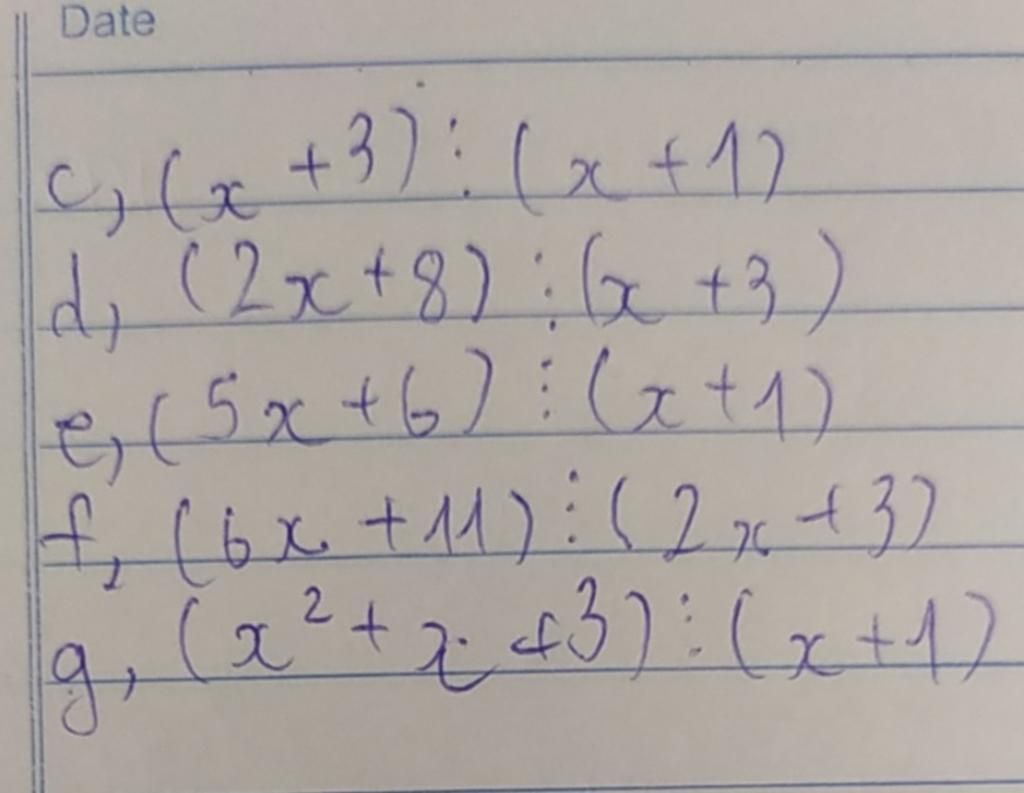 Date
c, (x + 3) ⋮ (x + 1)
d, (2x + 8) ⋮ (x + 3)
e, (5x + 6) ⋮ (x + 1)
f, (6x + 11) ⋮ (2x + 3)
g, (x² + x + 3) ⋮ (x + 1)